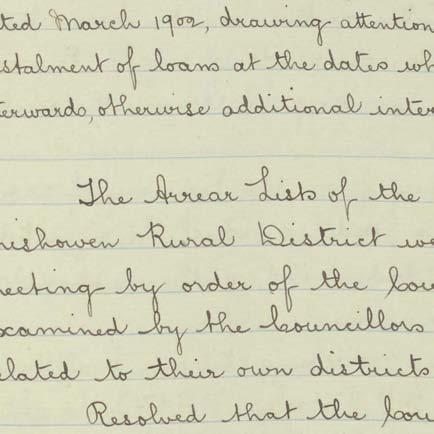 ted March 1902, drawing attention
stalment of loans at the dates wh
terwards, otherwise additional inter
The Arrear Lists of the
nishowen Rural District we
eeting by order of the Cou
xamined by the Councillors
elated to their own districts
Resolved that the Cou